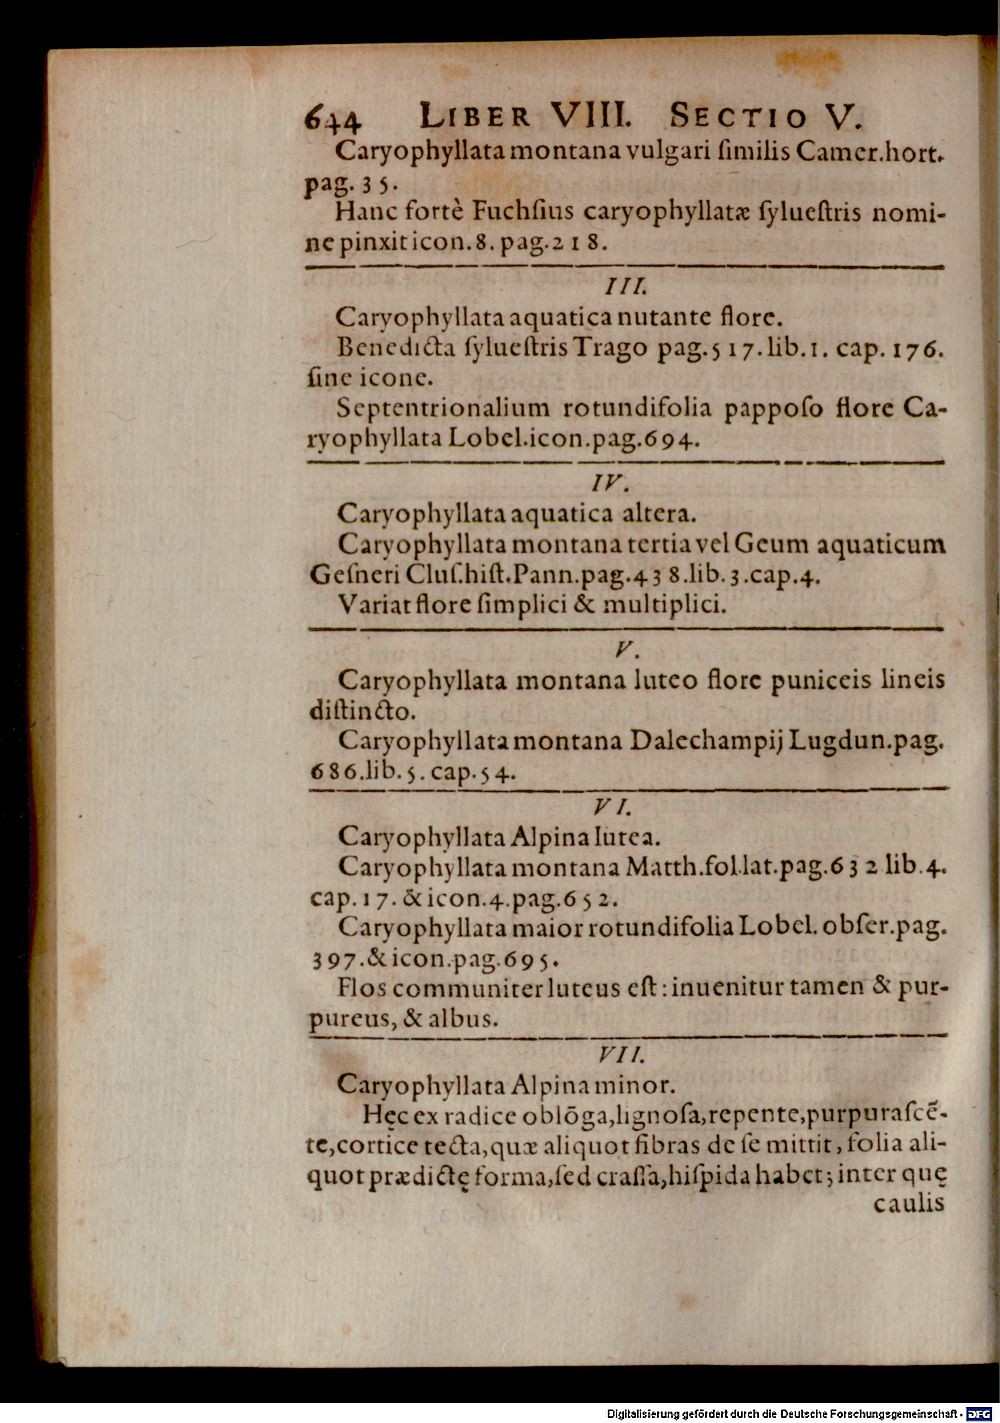 644 LIBER VIII. SECTIO V.
Caryophyllata montana vulgari ſimilis Camer.hort.
pag. 35.
Hanc fortè Fuchſius caryophyllatæ ſylueſtris nomi-
ne pinxit icon.8. pag.218.
III.
Caryophyllata aquatica nutante flore.
Benedicta ſylueſtris Trago pag.517.lib.1. cap. 176.
ſine icone.
Septentrionalium rotundifolia pappoſo flore Ca-
ryophyllata Lobel.icon.pag.694.
IV.
Caryophyllata aquatica altera.
Caryophyllata montana tertia vel Geum aquaticum
Geſneri Cluſ.hiſt.Pann.pag.438.lib.3.cap.4.
Variat flore ſimplici & multiplici.
V.
Caryophyllata montana luteo flore puniceis lineis
diſtincto.
Caryophyllata montana Dalechampij Lugdun.pag.
686.lib.5. cap.54.
VI.
Caryophyllata Alpina lutea.
Caryophyllata montana Matth.fol.lat.pag.632 lib.4.
cap.17. & icon.4.pag.652.
Caryophyllata maior rotundifolia Lobel. obſer.pag.
397.& icon.pag.695.
Flos communiter luteus eſt: inuenitur tamen & pur-
pureus, & albus.
VII.
Caryophyllata Alpina minor.
Hęc ex radice oblōga, lignoſa, repente, purpuraſcē-
te, cortice tecta, quæ aliquot fibras de ſe mittit, folia ali-
quot prædictę forma, ſed craſſa, hiſpida habet; inter quę
caulis
Digitalisierung gefördert durch die Deutsche Forschungsgemeinschaft - DFG